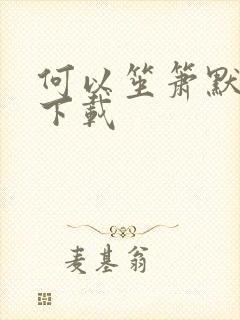 何以笙箫默
下载
麦基翁